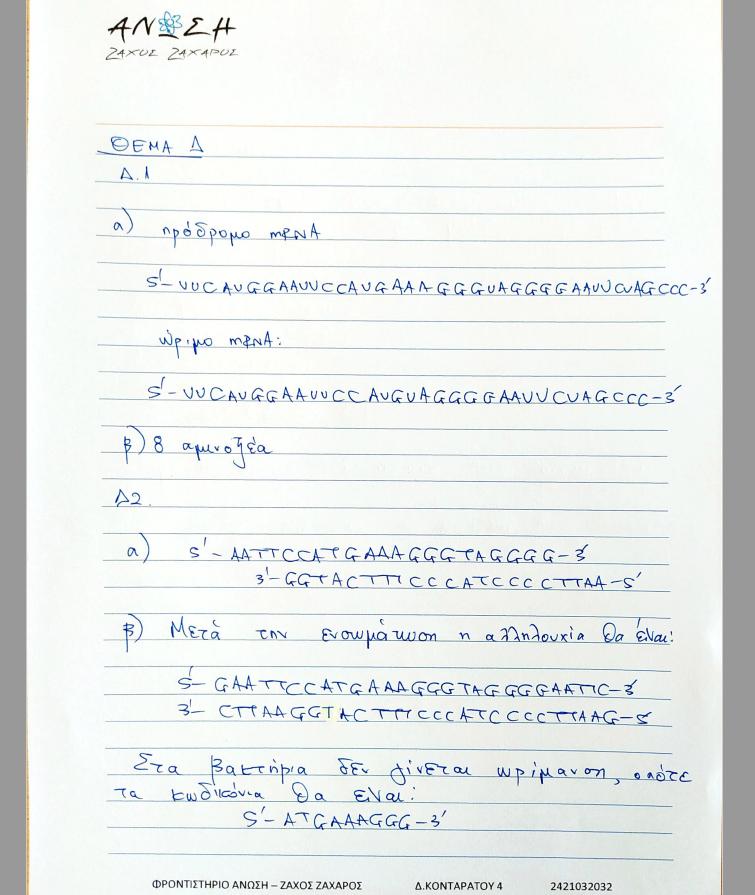 ΑΝΩΣΗ
ΖΑΧΟΣ ΖΑΧΑΡΟΣ
ΘΕΜΑ Δ
Δ.1
α) πρόδρομο mRNA
5'-UUCAUGGAAUUCCAUGAAAGGGUAGGGGAAUUCUAGCCC-3'
ώριμο mRNA:
5'-UUCAUGGAAUUCCAUGUAGGGGAAUUCUAGCCC-3'
β) 8 αμινοξέα
Δ2.
α) 5'-AATTCCATGAAAGGGTAGGGG-3'
3'-GGTACTTTCCCATCCCCTTAA-5'
β) Μετά την ενσωμάτωση η αλληλουχία θα είναι:
5'-GAATTCCATGAAAGGGTAGGGGAATTC-3'
3'-CTTAAGGTACTTTCCCATCCCCTTAAG-5'
Στα βακτήρια δεν γίνεται ωρίμανση, οπότε
τα κωδικόνια θα είναι:
5'-ATGAAAGGG-3'
ΦΡΟΝΤΙΣΤΗΡΙΟ ΑΝΩΣΗ – ΖΑΧΟΣ ΖΑΧΑΡΟΣ Δ.ΚΟΝΤΑΡΑΤΟΥ 4 2421032032